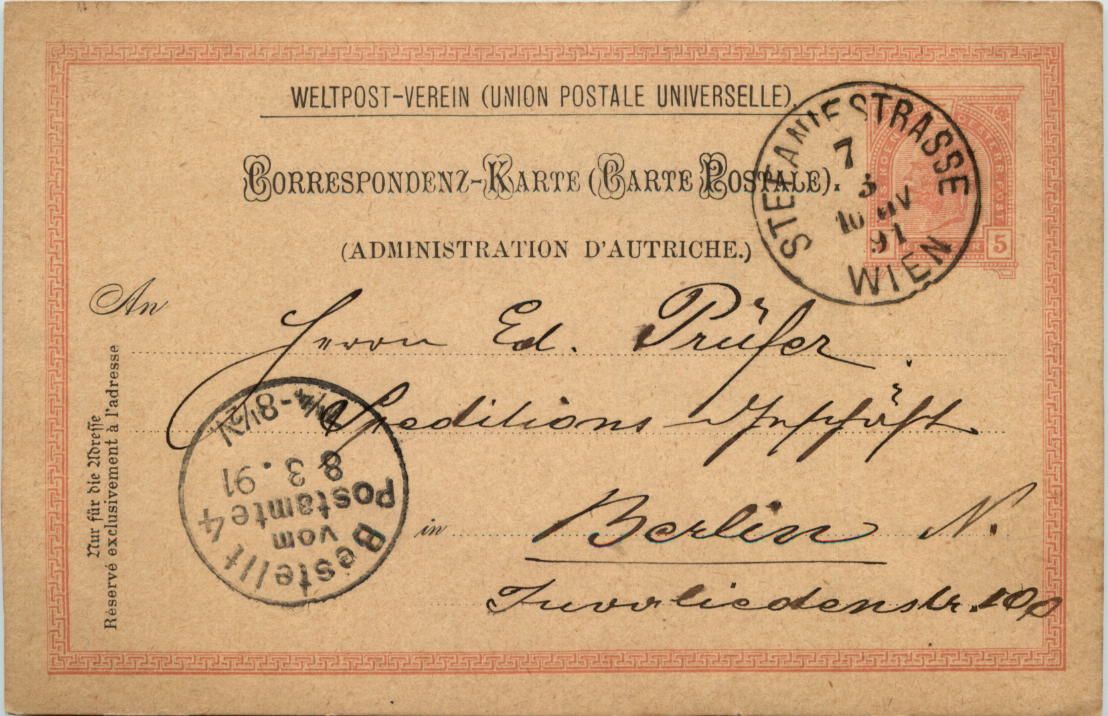 WELTPOST-VEREIN (UNION POSTALE UNIVERSELLE).
CORRESPONDENZ-KARTE (CARTE POSTALE).
(ADMINISTRATION D'AUTRICHE.)
STEFANIESTRASSE
7
3
91
WIEN
5
An
Herrn Ed. Prüfer
Speditions Geschäft
in Berlin N.
Invalidenstr. 100
Bestellt
vom
Postamte 4
8 3. 91
-8½V
Nur für die Adresse
Réservé exclusivement à l'adresse